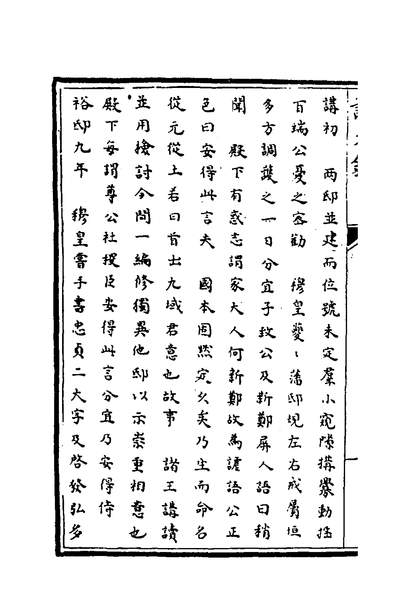 講初　兩邸並建而位號未定羣小窺隙搆釁動搖
百端公憂之密勸　穆皇夔夔藩邸現左右戒屬垣
多方調護之一日分宜子致公及新鄭屏人語曰稍
聞　殿下有惑志謂家大人何新鄭故為謔語公正
色曰安得此言夫　國本固默定久矣乃生而命名
從元從土若曰首出九域君意也故事　諸王講讀
並用檢討今問一編修獨異他邸以示崇重相意也
殿下每謂尊公社稷臣安得此言分宜乃安得侍
裕邸九年　穆皇嘗手書忠貞二大字及啓發弘多